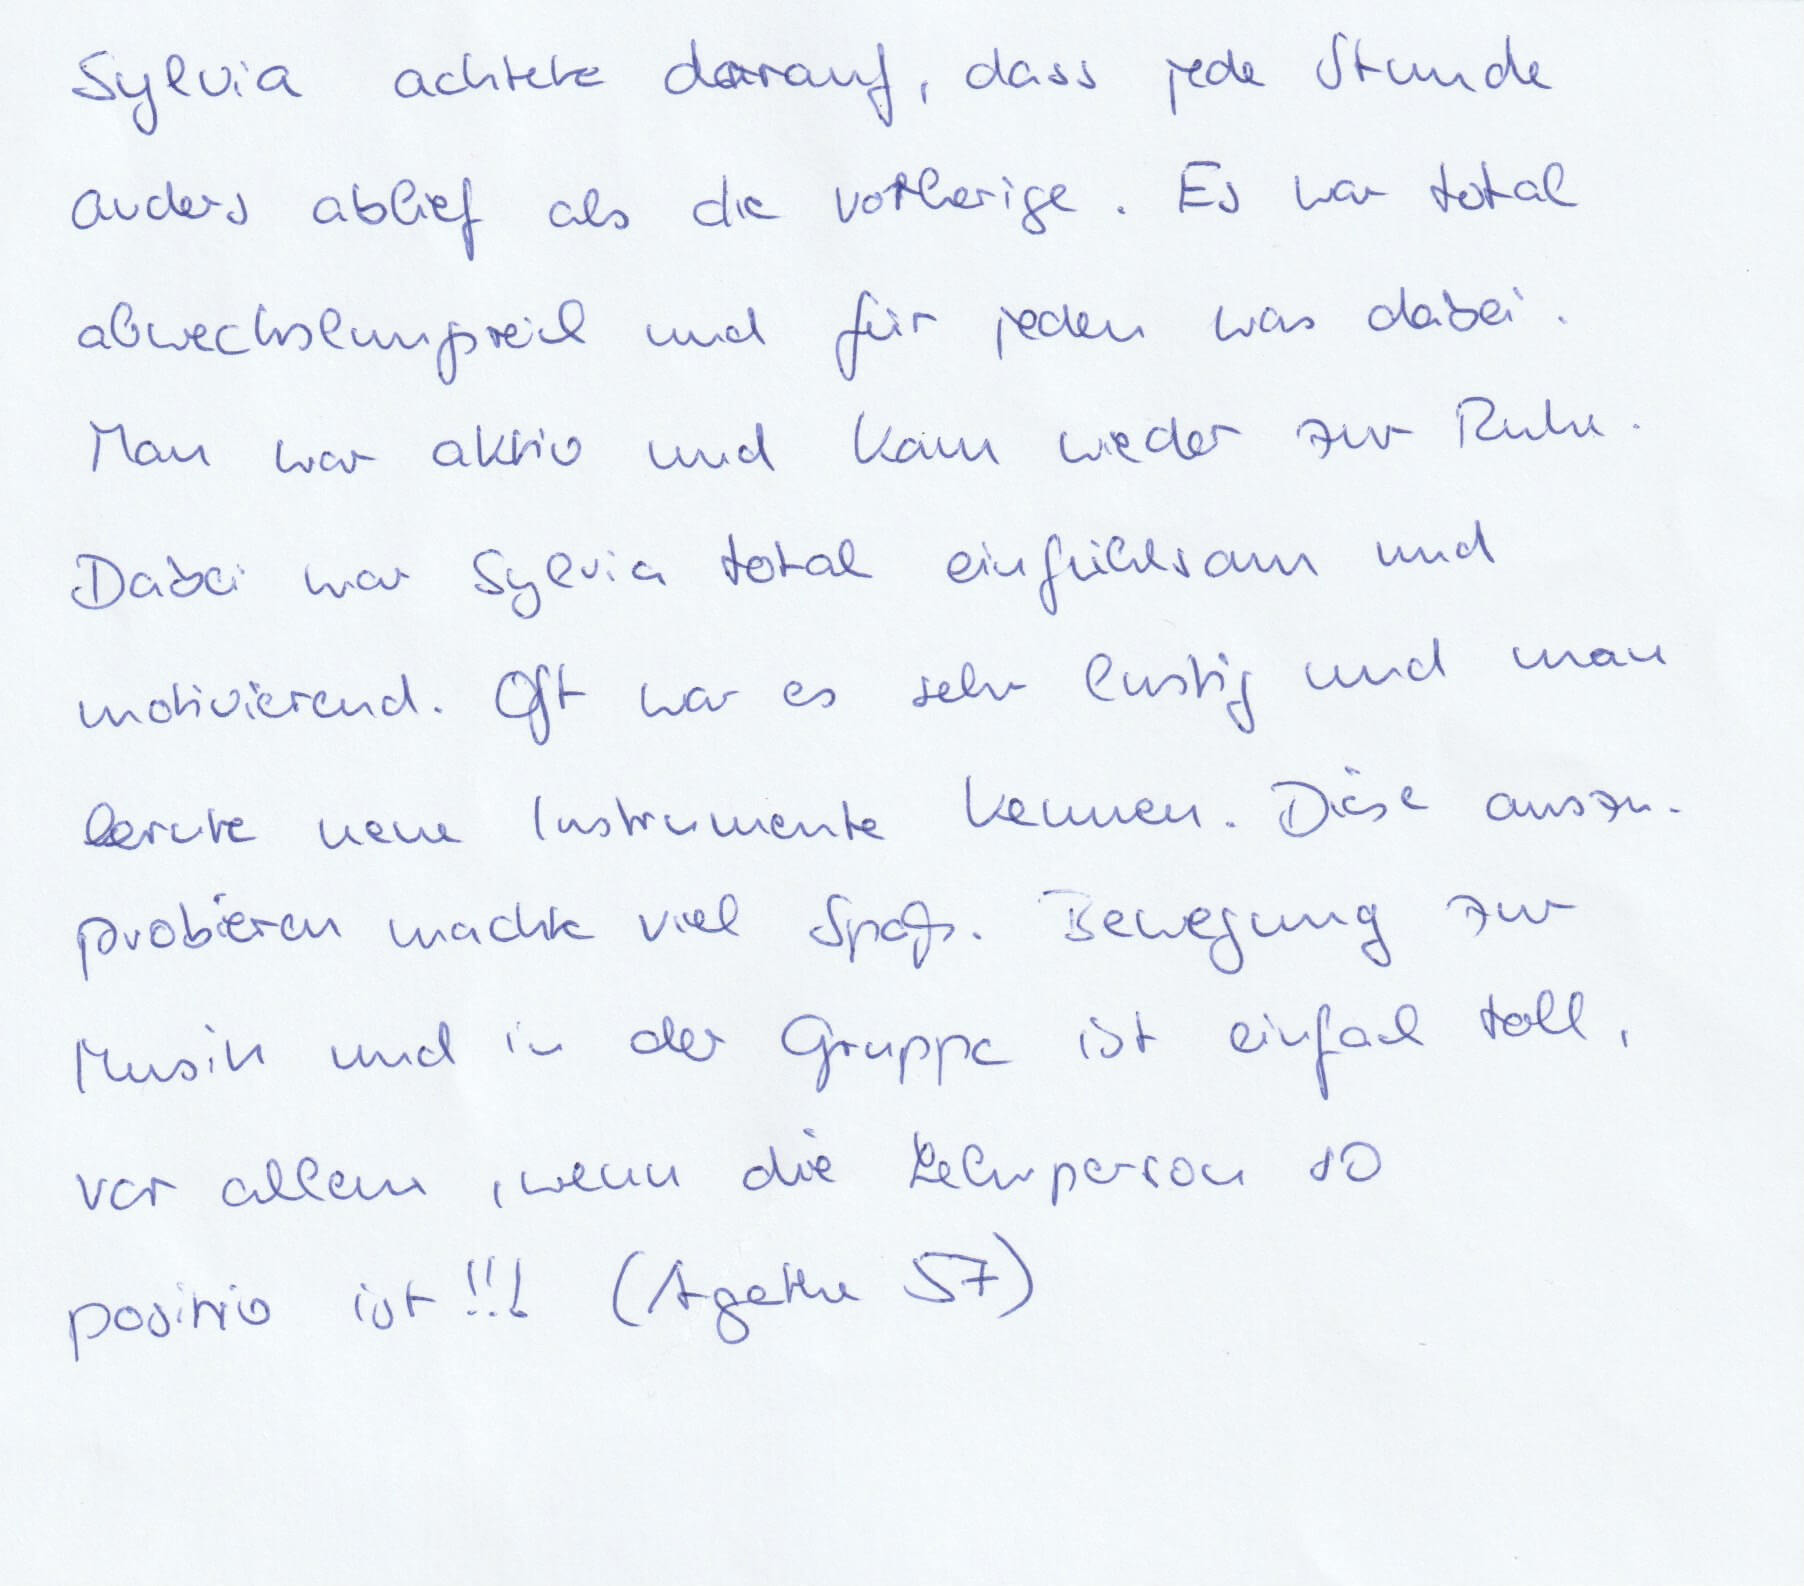 Sylvia achtete darauf, dass jede Stunde
anders ablief als die vorherige. Es war total
abwechslungsreich und für jeden was dabei.
Man war aktiv und kam wieder zur Ruhe.
Dabei war Sylvia total einfühlsam und
motivierend. Oft war es sehr lustig und man
lernte neue Instrumente kennen. Diese auszu-
probieren machte viel Spaß. Bewegung zur
Musik und in der Gruppe ist einfach toll,
vor allem, wenn die Lehrperson so
positiv ist!!! (Agathe 57)